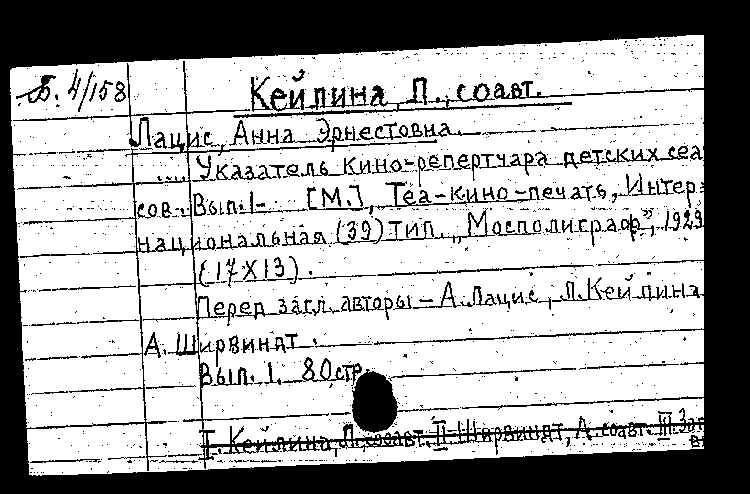 Б. 4/158
Кейлина, Л., соавт.
Лацис, Анна Эрнестовна.
.... Указатель кино-репертуара детских сеа
сов. Вып. 1- [М.], Теа-кино-печать, Интер=
национальная (39) тип. „Мосполиграф”, 1929
(17X13).
Перед загл. авторы - А. Лацис, Л. Кейлина
А. Ширвиндт.
Вып. 1. 80 стр.
I. Кейлина, Л., соавт. II. Ширвиндт, А. соавт. III. Заг